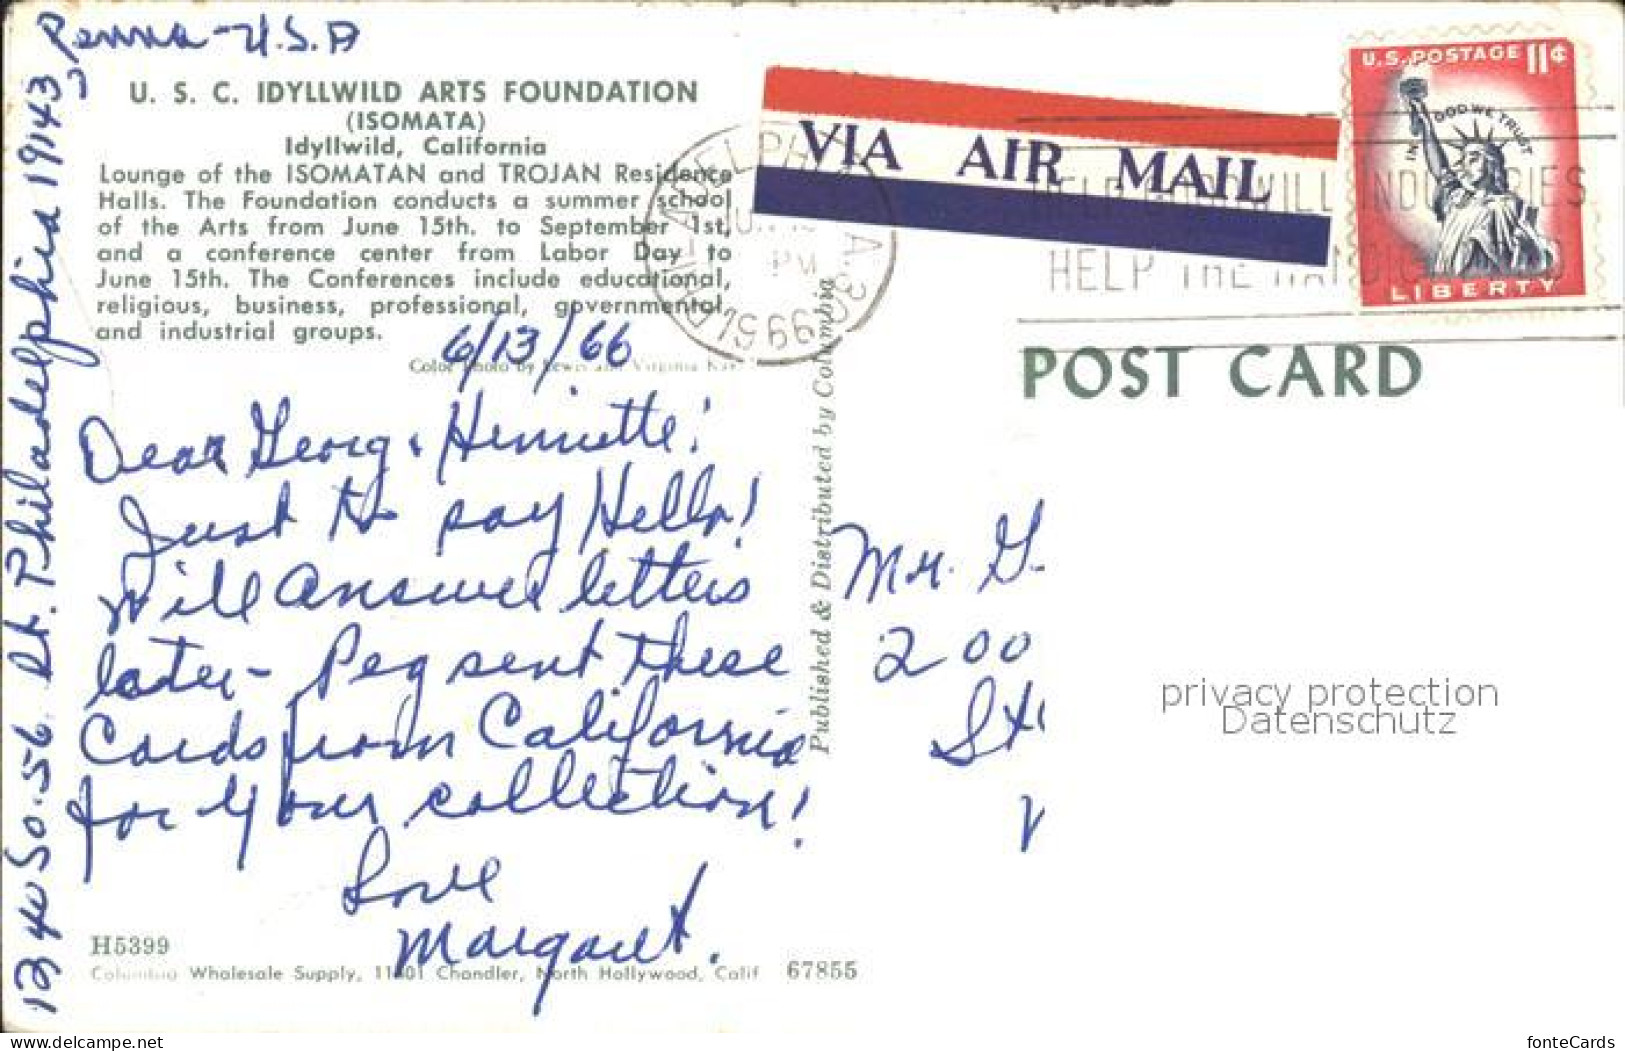 Penna - U.S.A
1240 So. 56 St. Philadelphia 19143,
U. S. C. IDYLLWILD ARTS FOUNDATION
(ISOMATA)
Idyllwild, California
Lounge of the ISOMATAN and TROJAN Residence
Halls. The Foundation conducts a summer school
of the Arts from June 15th. to September 1st,
and a conference center from Labor Day to
June 15th. The Conferences include educational,
religious, business, professional, governmental,
and industrial groups.
Color Photo by Lewis and Virginia
6/13/66
Dear Georg & Henriette!
Just to say Hello!
Will answer letters
later - Peg sent these
Cards from California
for your collection!
Love
Margaret.
H5399
Columbia Wholesale Supply, 11401 Chandler, North Hollywood, Calif 67855
Published & Distributed by Columbia
VIA AIR MAIL
U.S. POSTAGE 11¢
IN GOD WE TRUST
LIBERTY
PM
HELP THE
POST CARD
Mr. G
200
privacy protection
Datenschutz
www.delcampe.net
fonteCards